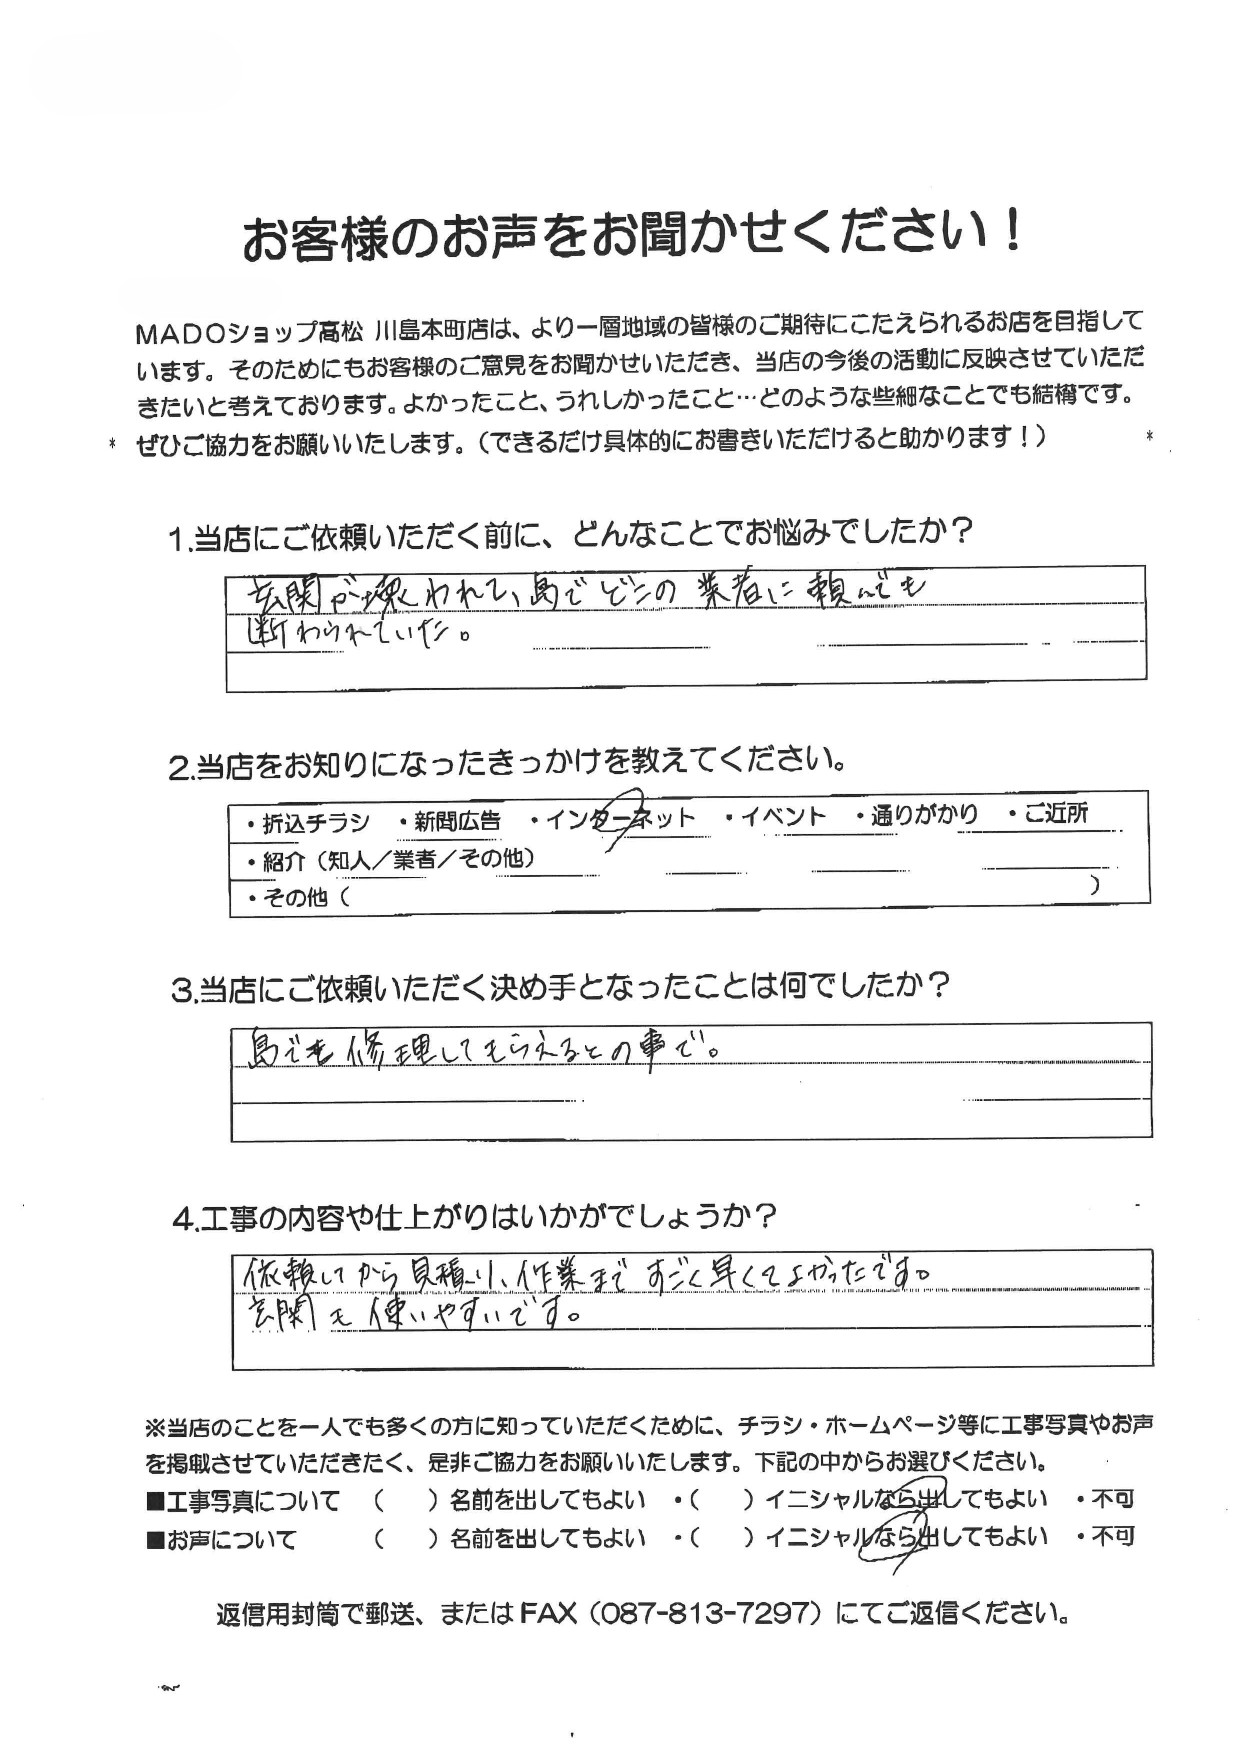 お客様のお声をお聞かせください！
MADOショップ高松 川島本町店は、より一層地域の皆様のご期待にこたえられるお店を目指して
います。そのためにもお客様のご意見をお聞かせいただき、当店の今後の活動に反映させていただ
きたいと考えております。よかったこと、うれしかったこと…どのような些細なことでも結構です。
* ぜひご協力をお願いいたします。（できるだけ具体的にお書きいただけると助かります！） *
1.当店にご依頼いただく前に、どんなことでお悩みでしたか？
玄関が壊われて、島でどこの業者に頼んでも
断わられていた。
2.当店をお知りになったきっかけを教えてください。
・折込チラシ ・新聞広告 ・インターネット ・イベント ・通りがかり ・ご近所
・紹介（知人／業者／その他）
・その他（ ）
3.当店にご依頼いただく決め手となったことは何でしたか？
島でも修理してもらえるとの事で。
4.工事の内容や仕上がりはいかがでしょうか？
依頼してから見積り、作業まですごく早くてよかったです。
玄関も使いやすいです。
※当店のことを一人でも多くの方に知っていただくために、チラシ・ホームページ等に工事写真やお声
を掲載させていただきたく、是非ご協力をお願いいたします。下記の中からお選びください。
■工事写真について （ ）名前を出してもよい ・（ ）イニシャルなら出してもよい ・不可
■お声について （ ）名前を出してもよい ・（ ）イニシャルなら出してもよい ・不可
返信用封筒で郵送、またはFAX（087-813-7297）にてご返信ください。